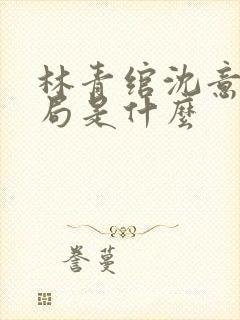 林青绾沈意
局是什麼
誉蔓